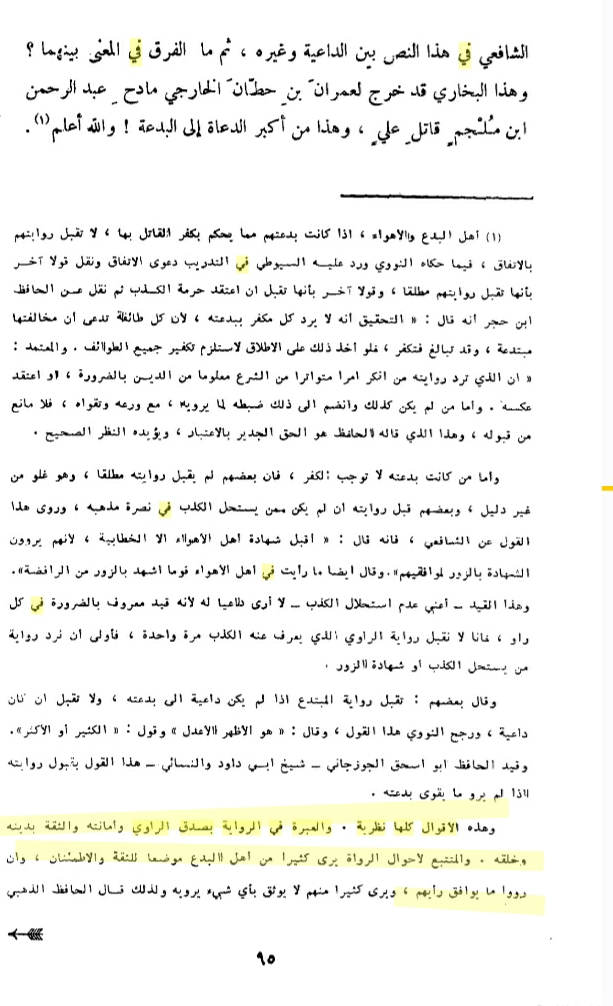 الشافعي في هذا النص بين الداعية وغيره ، ثم ما الفرق في المعنى بينهما ؟
وهذا البخاري قد خرج لعمرانَ بنِ حطّانَ الخارجي مادحِ عبد الرحمن
ابن مُلْجمٍ قاتلِ عليٍ ، وهذا من أكبر الدعاة إلى البدعة ! والله أعلم(١) .
(١) أهل البدع والأهواء ، اذا كانت بدعتهم مما يحكم بكفر القائل بها ، لا تقبل روايتهم
بالاتفاق ، فيما حكاه النووي ورد عليه السيوطي في التدريب دعوى الاتفاق ونقل قولا آخر
بأنها تقبل روايتهم مطلقا ، وقولا آخر بأنها تقبل ان اعتقد حرمة الكذب ثم نقل عن الحافظ
ابن حجر أنه قال : « التحقيق أنه لا يرد كل مكفر ببدعته ، لأن كل طائفة تدعى أن مخالفتها
مبتدعة ، وقد تبالغ فتكفر ، فلو أخذ ذلك على الاطلاق لاستلزم تكفير جميع الطوائف . والمعتمد :
« ان الذي ترد روايته من انكر امرا متواترا من الشرع معلوما من الدين بالضرورة ، او اعتقد
عكسه . وأما من لم يكن كذلك وانضم الى ذلك ضبطه لما يرويه ، مع ورعه وتقواه ، فلا مانع
من قبوله ، وهذا الذي قاله الحافظ هو الحق الجدير بالاعتبار ، ويؤيده النظر الصحيح .
وأما من كانت بدعته لا توجب الكفر ، فان بعضهم لم يقبل روايته مطلقا ، وهو غلو من
غير دليل ، وبعضهم قبل روايته ان لم يكن ممن يستحل الكذب في نصرة مذهبه ، وروى هذا
القول عن الشافعي ، فانه قال : « أقبل شهادة أهل الأهواء الا الخطابية ، لأنهم يروون
الشهادة بالزور لموافقيهم». وقال ايضا ما رأيت في أهل الأهواء قوما اشهد بالزور من الرافضة».
وهذا القيد ــ أعني عدم استحلال الكذب ــ لا أرى داعيا له لأنه قيد معروف بالضرورة في كل
راو ، فانا لا نقبل رواية الراوي الذي يعرف عنه الكذب مرة واحدة ، فأولى أن نرد رواية
من يستحل الكذب او شهادة الزور .
وقال بعضهم : تقبل رواية المبتدع اذا لم يكن داعية الى بدعته ، ولا تقبل ان كان
داعية ، ورجح النووي هذا القول ، وقال : « هو الأظهر الأعدل » وقول : « الكثير أو الأكثر».
وقيد الحافظ ابو اسحق الجوزجاني ــ شيخ ابي داود والنسائي ــ هذا القول بقبول روايته
اذا لم يرو ما يقوى بدعته .
وهذه الأقوال كلها نظرية . والعبرة في الرواية بصدق الراوي وأمانته والثقة بدينه
وخلقه . والمتتبع لأحوال الرواة يرى كثيرا من أهل البدع موضعا للثقة والاطمئنان ، وأن
رووا ما يوافق رأيهم ، ويرى كثيرا منهم لا يوثق بأي شيء يرويه ولذلك قال الحافظ الذهبي
٩٥